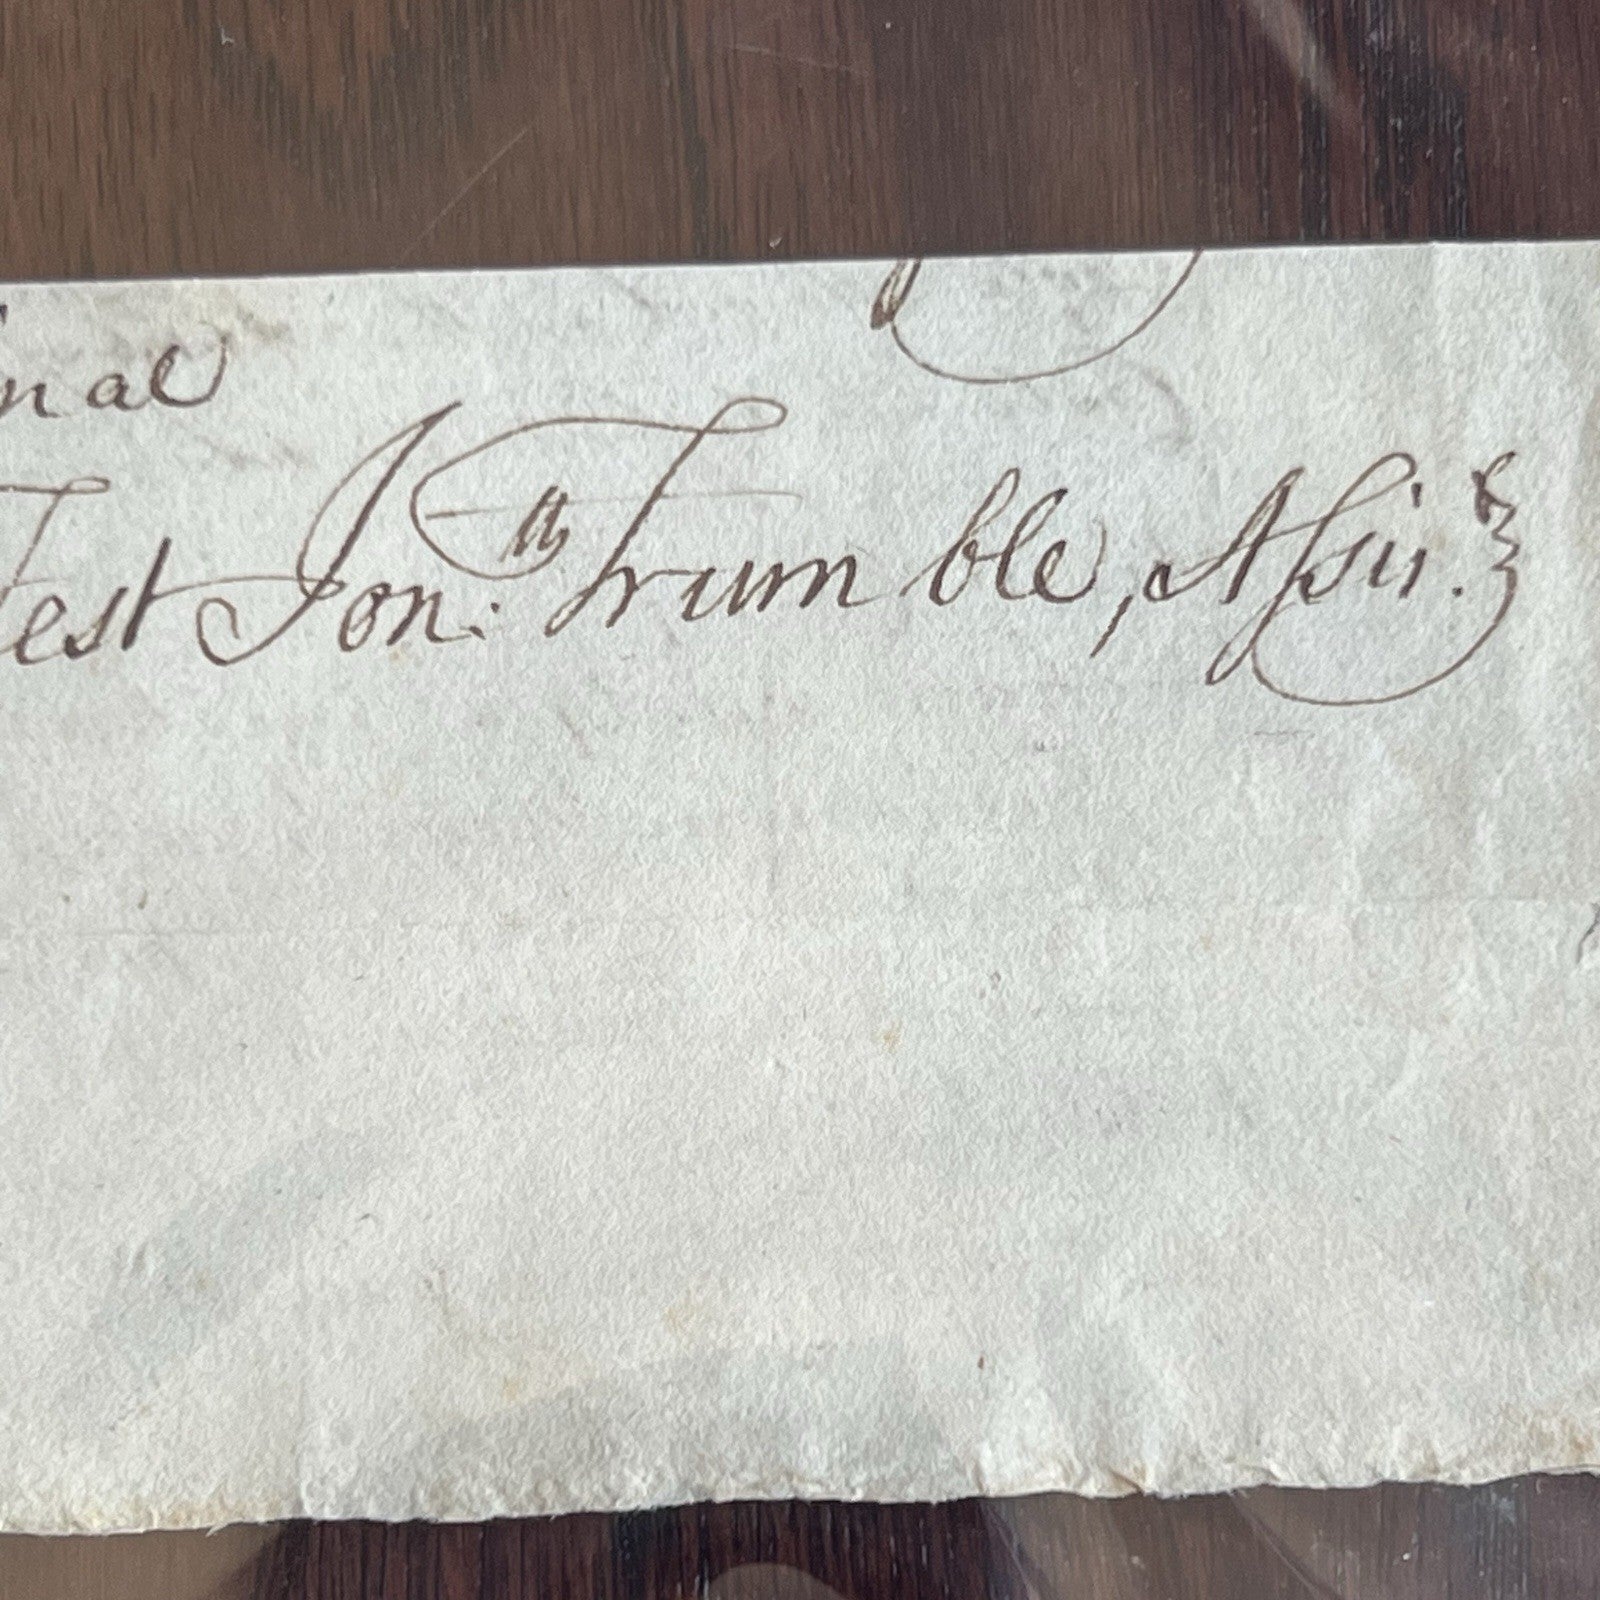 inal
Test Jon:th Trumble, Assis.